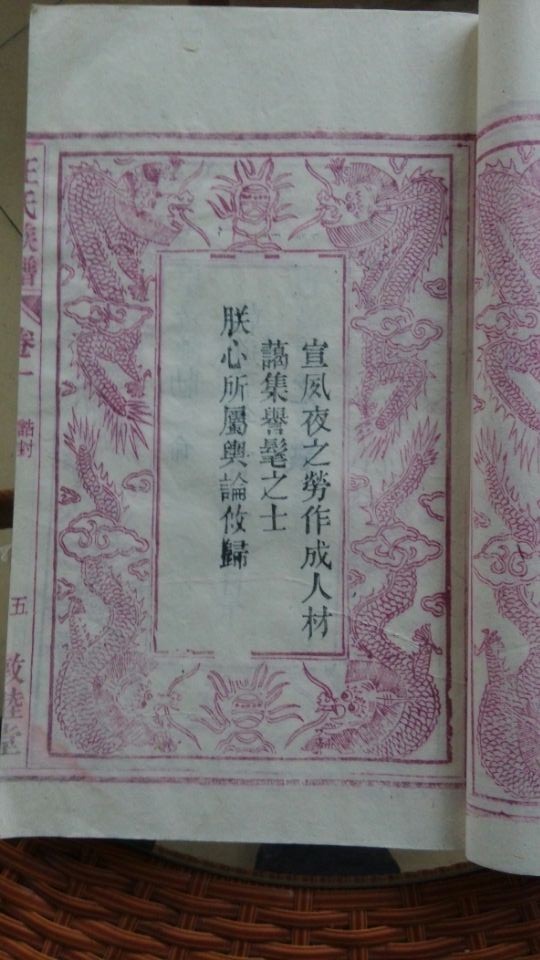 宣夙夜之勞作成人材
藹集譽髦之士
朕心所屬輿論攸歸
王氏族譜
卷一
誥封
五
敦睦堂